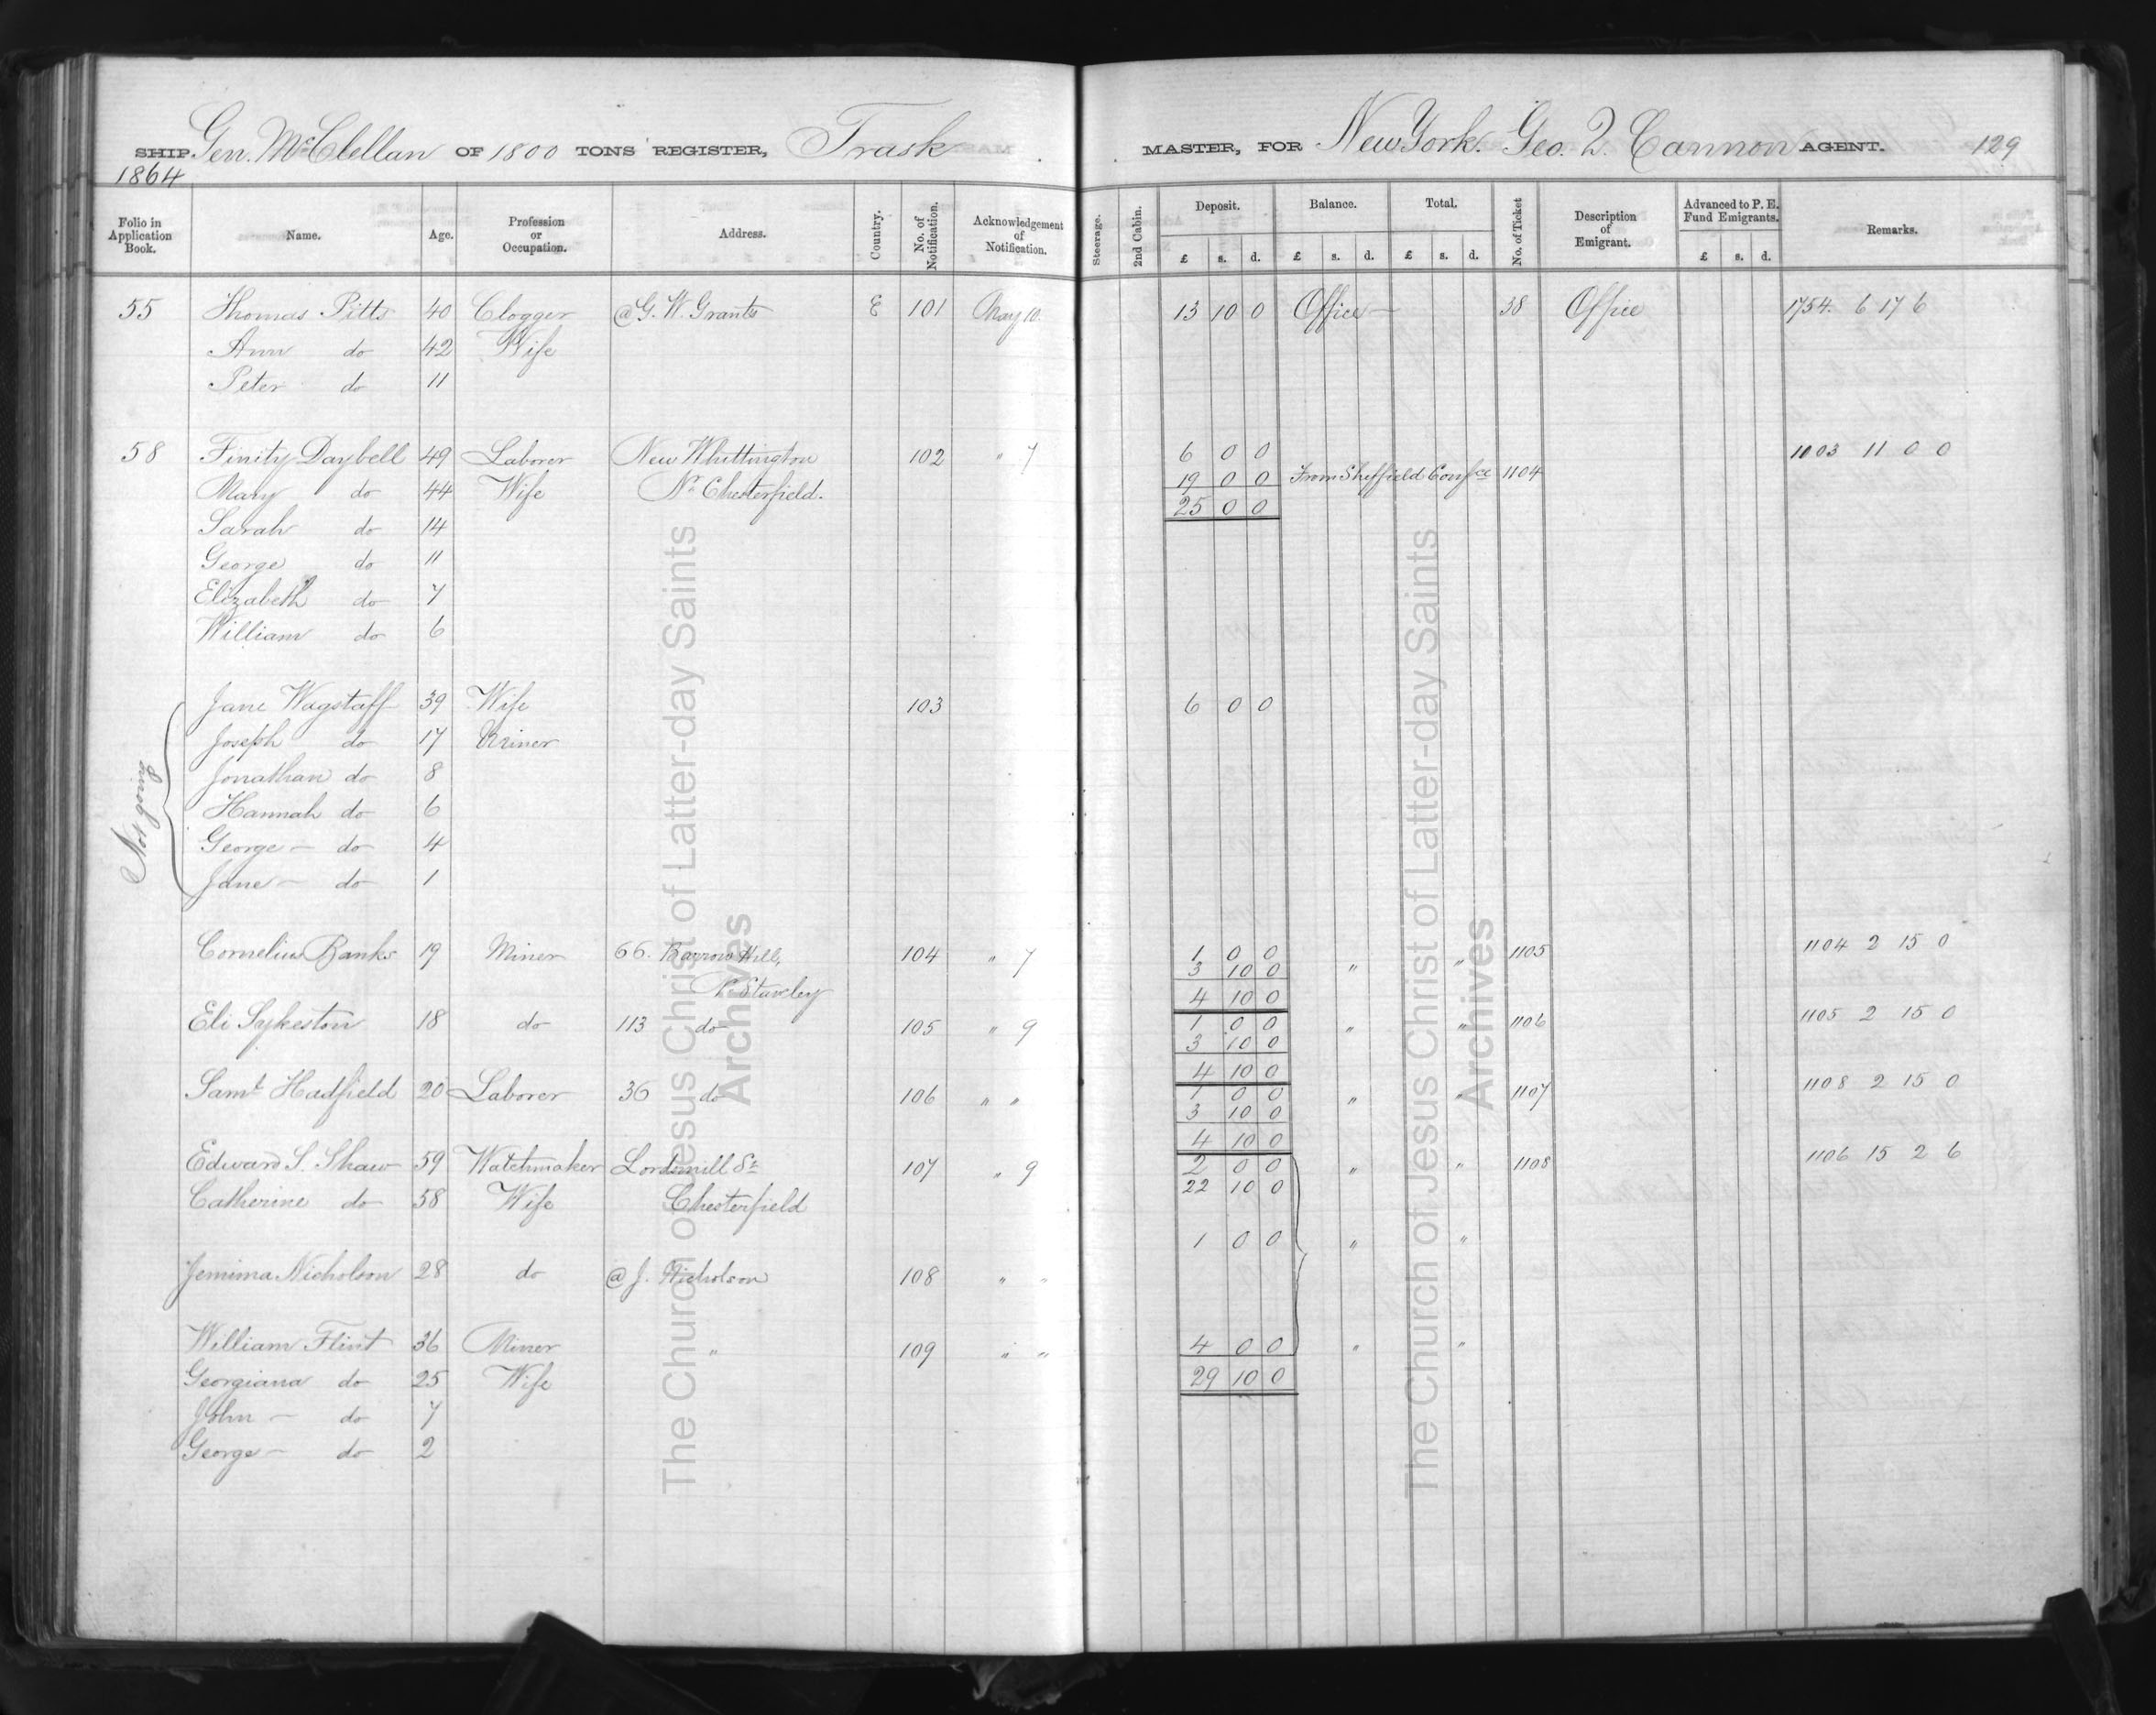 SHIP Gen. McClellan OF 1800 TONS REGISTER, Trask MASTER, FOR New York. Geo. Q. Cannon AGENT. 129
1864
Folio in Application Book. Name. Age. Profession or Occupation. Address. Country. No. of Notification. Acknowledgement of Notification. Steerage. 2nd Cabin. Deposit. £ s. d. Balance. £ s. d. Total. £ s. d. No. of Ticket Description of Emigrant. Advanced to P. E. Fund Emigrants. £ s. d. Remarks.
55 Thomas Pitts 40 Clogger @ G. W. Grants E 101 May 10. 13 10 0 Office — 38 Office 1754. 6 17 6
Ann do 42 Wife
Peter do 11
58 Finity Daybell 49 Laborer New Whittington 102 " 7 6 0 0 1103 11 0 0
Mary do 44 Wife Nr Chesterfield. 19 0 0 From Sheffield Confce 1104
25 0 0
Sarah do 14
George do 11
Elizabeth do 7
William do 6
Not going
Jane Wagstaff 39 Wife 103 6 0 0
Joseph do 17 Miner
Jonathan do 8
Hannah do 6
George — do 4
Jane — do 1
Cornelius Banks 19 Miner 66. Barrow Hill, 104 " 7 1 0 0 1105 1104 2 15 0
3 10 0 " "
Nr Staveley 4 10 0
Eli Sykeston 18 do 113 do 105 " 9 1 0 0 " " 1106 1105 2 15 0
3 10 0
4 10 0
Saml Hadfield 20 Laborer 36 do 106 " " 1 0 0 " " 1107 1108 2 15 0
3 10 0
4 10 0
Edward S. Shaw 59 Watchmaker Lordsmill St 107 " 9 2 0 0 " " 1108 1106 15 2 6
Catherine do 58 Wife Chesterfield 22 10 0
1 0 0 " "
Jemima Nicholson 28 do @ J. Nicholson 108 " "
William Flint 36 Miner " 109 " " 4 0 0 " "
Georgiana do 25 Wife 29 10 0
John — do 7
George — do 2
The Church of Jesus Christ of Latter-day Saints
Archives
The Church of Jesus Christ of Latter-day Saints
Archives